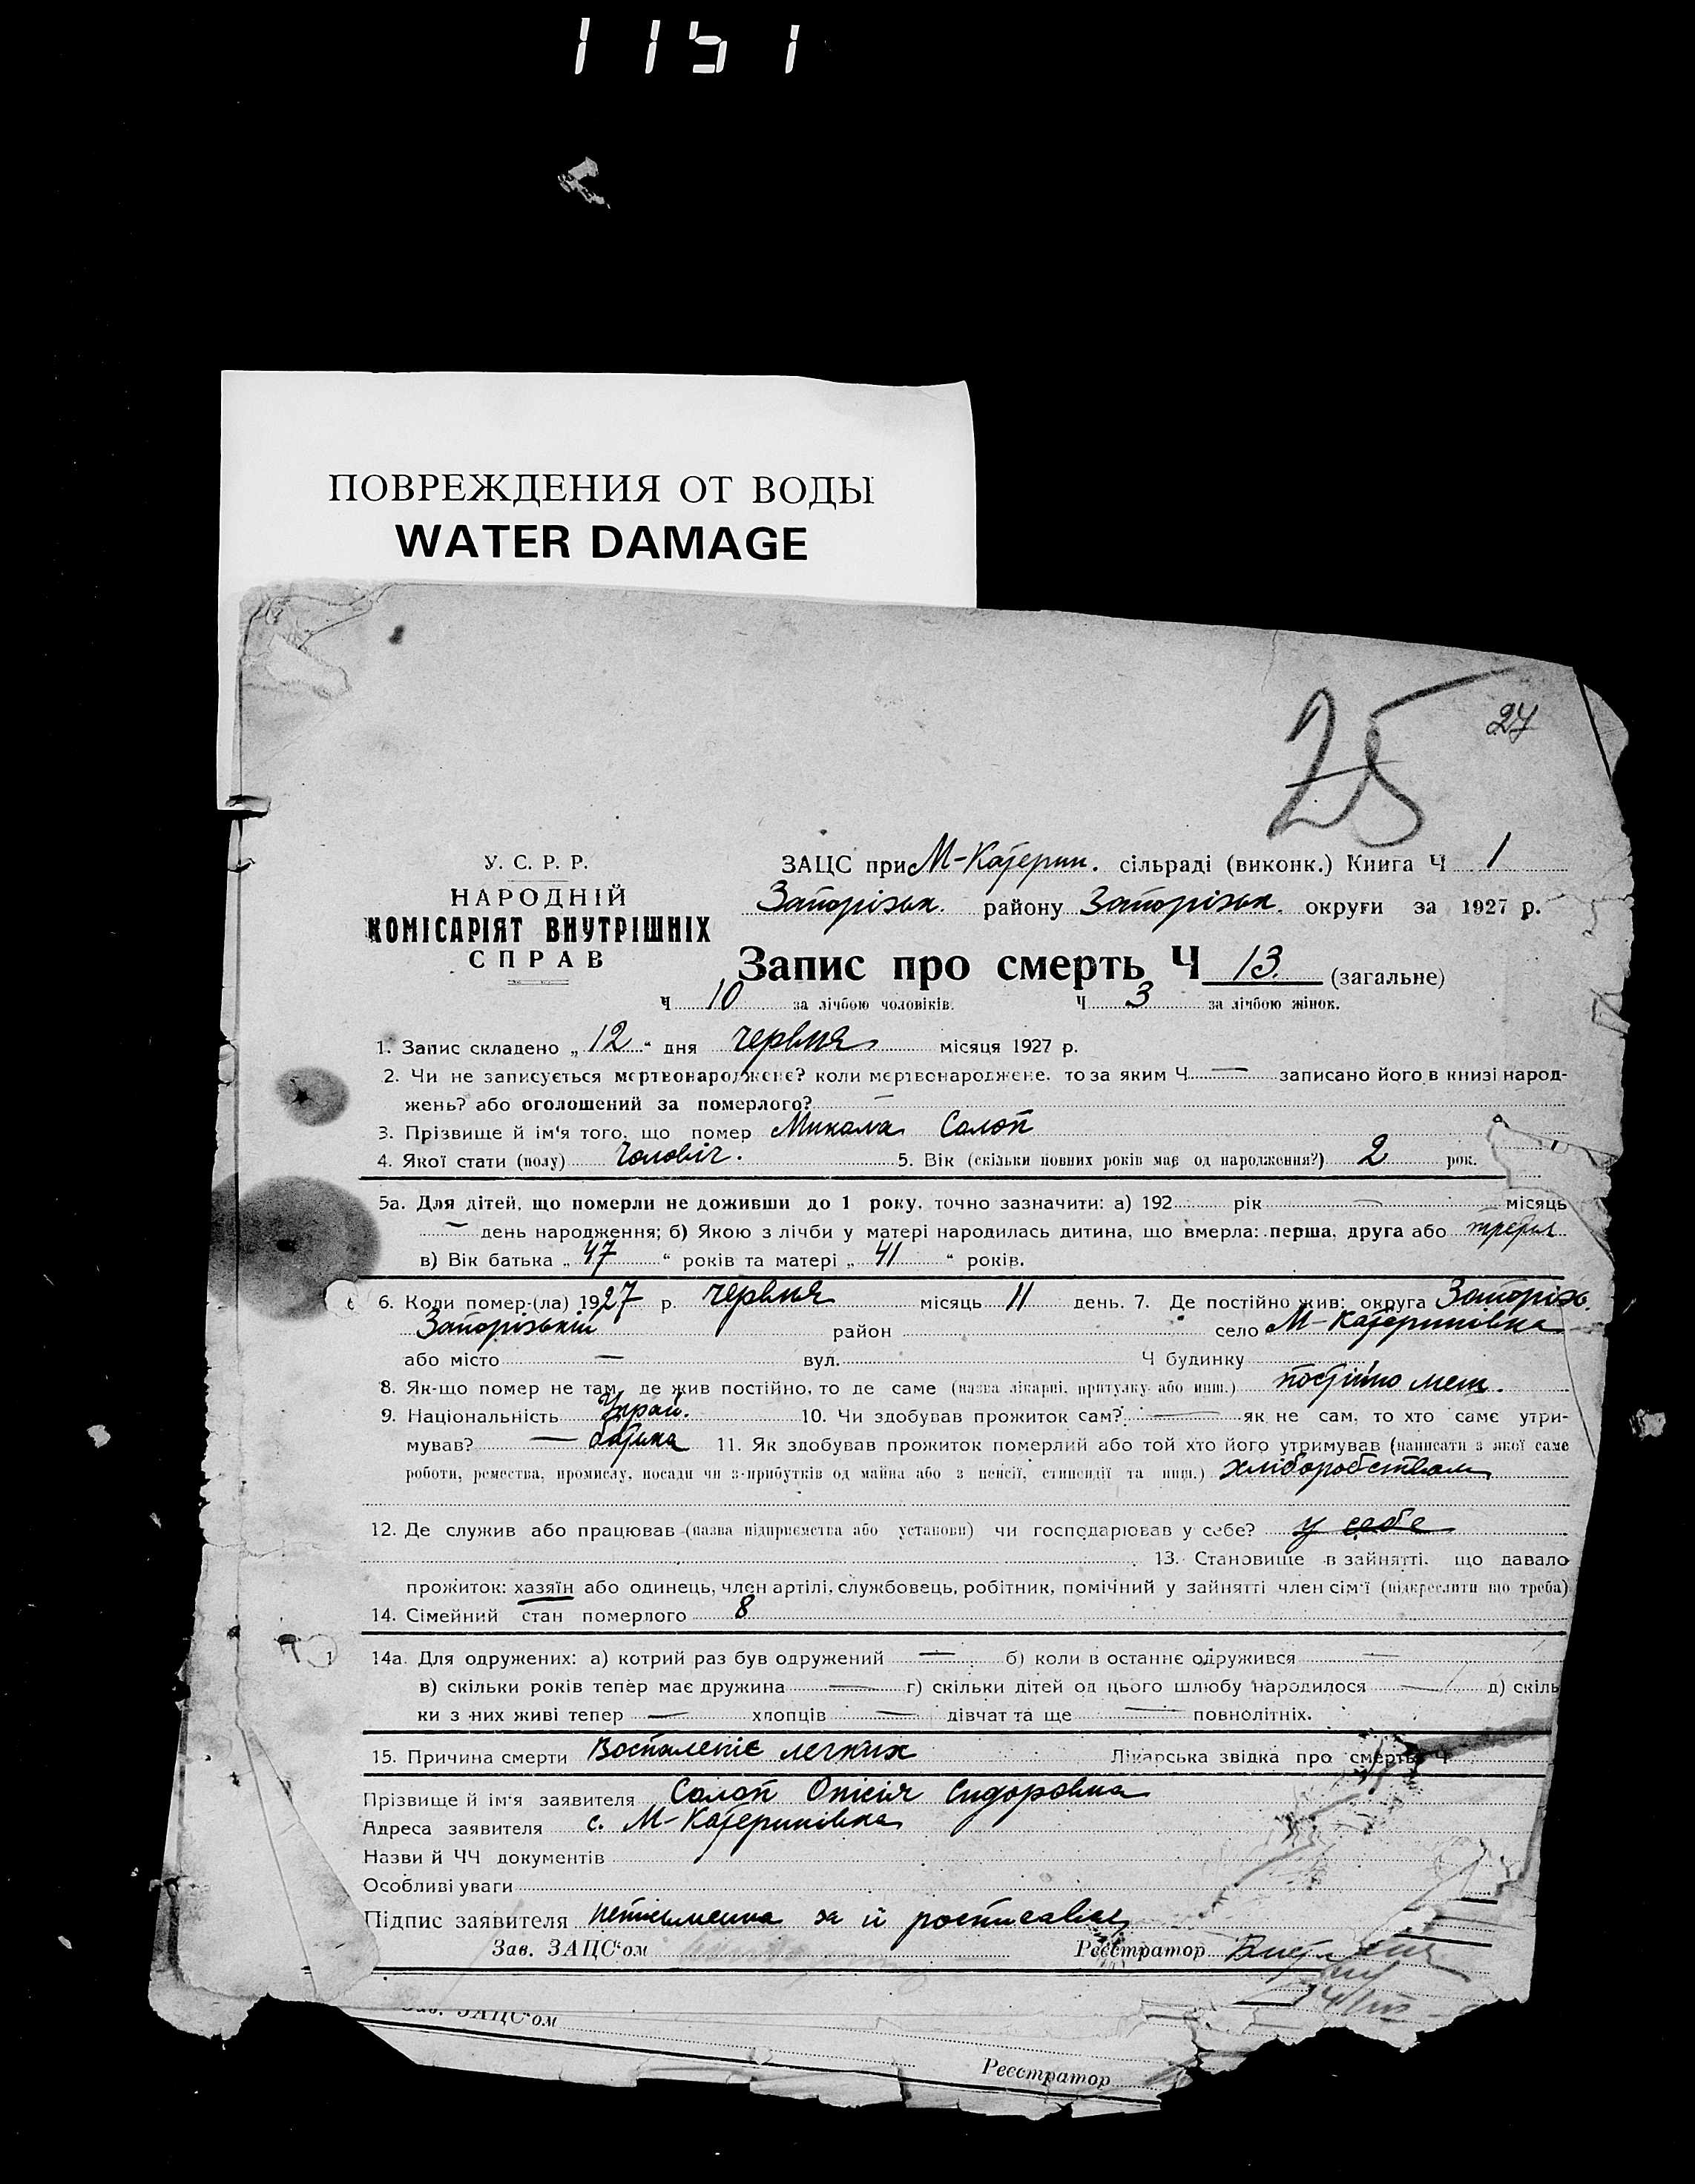 1151
ПОВРЕЖДЕНИЯ ОТ ВОДЫ
WATER DAMAGE
25
27
У. С. Р. Р.
НАРОДНІЙ
КОМІСАРІЯТ ВНУТРІШНІХ
СПРАВ
ЗАЦС при М-Катерин. сільраді (виконк.) Книга Ч 1
Запорізьк. району Запорізьк. округи за 1927 р.
Запис про смерть Ч 13. (загальне)
Ч 10 за лічбою чоловіків. Ч 3 за лічбою жінок.
1. Запис складено „ 12 “ дня червня місяця 1927 р.
2. Чи не записується мертвонароджене? коли мертвонароджене, то за яким Ч — записано його в книзі народ-
жень? або оголошений за померлого? —
3. Прізвище й ім'я того, що помер Микола Солоп
4. Якої стати (полу) чоловіч. 5. Вік (скільки повних років має од народження?) 2 рок.
5а. Для дітей, що померли не доживши до 1 року, точно зазначити: а) 192 рік — місяць
— день народження; б) Якою з лічби у матері народилась дитина, що вмерла: перша, друга або третя
в) Вік батька „ 47 “ років та матері „ 41 “ років.
6. Коли помер-(ла) 1927 р. червня місяць 11 день. 7. Де постійно жив: округа Запорізь.
Запорізький район село М-Катеринівка
або місто — вул. Ч будинку
8. Як-що помер не там, де жив постійно, то де саме (назва лікарні, притулку або инш.) постійно меш.
9. Національність Украй. 10. Чи здобував прожиток сам? — як не сам, то хто саме утри-
мував? — батька 11. Як здобував прожиток померлий або той хто його утримував (написати з якої саме
роботи, ремества, промислу, посади чи з прибутків од майна або з пенсії, стипендії та инш.) хліборобством
12. Де служив або працював (назва підприємства або установи) чи господарював у себе? у себе
13. Становище в зайнятті, що давало
прожиток: хазяїн або одинець, член артілі, службовець, робітник, помічний у зайнятті член сім'ї (підкреслити що треба)
14. Сімейний стан померлого 8
14а. Для одружених: а) котрий раз був одружений — б) коли в останнє одружився —
в) скільки років тепер має дружина — г) скільки дітей од цього шлюбу народилося — д) скіль
ки з них живі тепер — хлопців — дівчат та ще — повнолітніх.
15. Причина смерти Воспаленіє легких Лікарська звідка про смерть Ч
Прізвище й ім'я заявителя Солоп Опісія Сидоровна
Адреса заявителя с. М-Катеринівка
Назви й ЧЧ документів
Особливі уваги
Підпис заявителя неписьменна за й росписався
Зав. ЗАЦС'ом Реєстратор
Зав. ЗАЦС'ом
Реєстратор